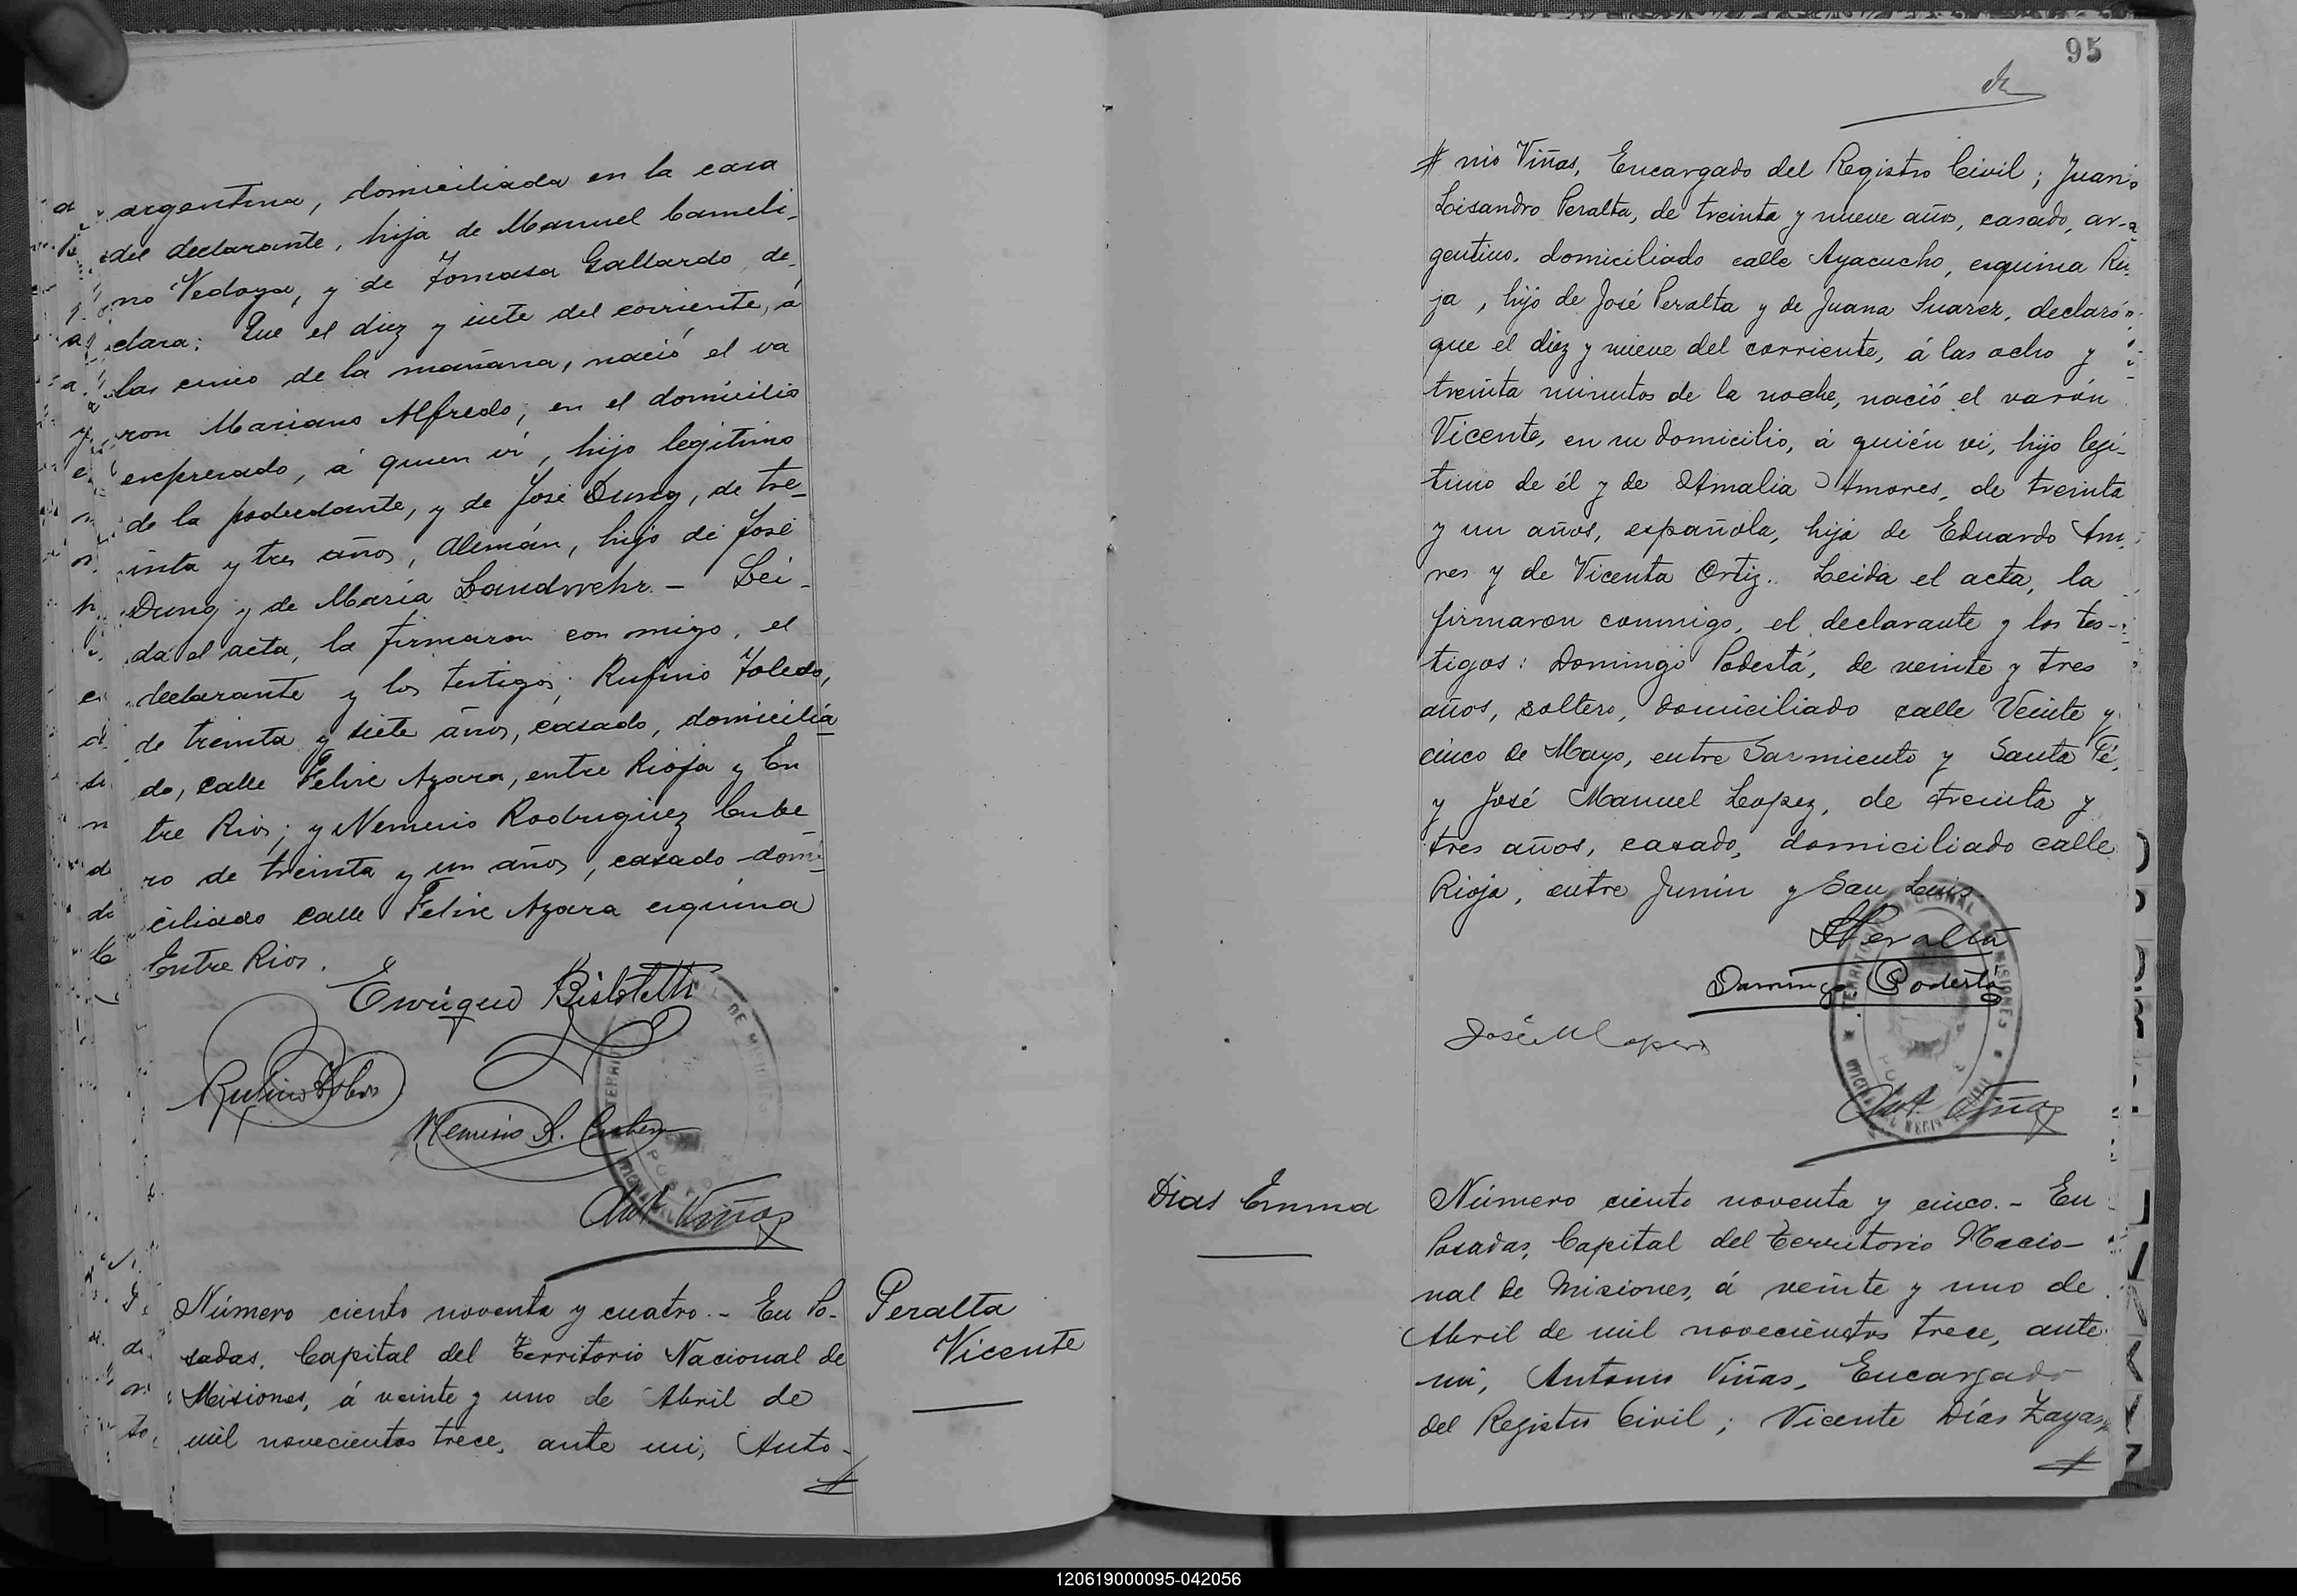 argentina, domiciliada en la casa
del declarante, hija de Manuel Cameli-
no Vedoya, y de Tomasa Gallardo, de-
clara: Que el diez y siete del corriente, á
las cinco de la mañana, nació el va
ron Mariano Alfredo, en el domicilio
expresado, á quien ví, hijo legítimo
de la poderdante, y de José Dung, de tre_
inta y tres años, Alemán, hijo de José
Dung y de María Landwehr. — Leí-
da el acta, la firmaron con migo, el
declarante y los testigos; Rufino Toledo,
de treinta y siete años, casado, domicilia
do, calle Felix Azara, entre Rioja y En
tre Rios; y Nemesio Rodriguez Cube
ro de treinta y un años, casado domi-
ciliado calle Felix Azara esquina
Entre Rios.
Enrique
Nemesio R. Cubero
Ant. Viñas
Número ciento noventa y cuatro. - En Po-
sadas, Capital del Territorio Nacional de
Misiones, á veinte y uno de Abril de
mil novecientos trece, ante mi, Anto-
#
Peralta
Vicente
95
# nio Viñas, Encargado del Registro Civil; Juan
Lisandro Peralta, de treinta y nueve años, casado, ar-
gentino, domiciliado calle Ayacucho, esquina Rio
ja, hijo de José Peralta y de Juana Suarez, declaró
que el diez y nueve del corriente, á las ocho y
treinta minutos de la noche, nació el varón
Vicente, en su domicilio, á quién vi, hijo legí-
timo de él y de Amalia Amores, de treinta
y un años, española, hija de Eduardo Amo
res y de Vicenta Ortiz. Leida el acta, la
firmaron conmigo, el declarante y los tes-
tigos: Domingo Podestá, de veinte y tres
años, soltero, domiciliado calle Veinte y
cinco de Mayo, entre Sarmiento y Santa Fé,
y José Manuel Lopez, de treinta y
tres años, casado, domiciliado calle
Rioja, entre Junin y San Luis
Peralta
Domingo Podestá
José M Lopez
Ant. Viñas
Dias Emma
Número ciento noventa y cinco. - En
Posadas, Capital del Territorio Nacio-
nal de Misiones, á veinte y uno de
Abril de mil novecientos trece, ante
mi, Antonio Viñas, Encargado
del Registro Civil; Vicente Días Zayas
#
120619000095-042056